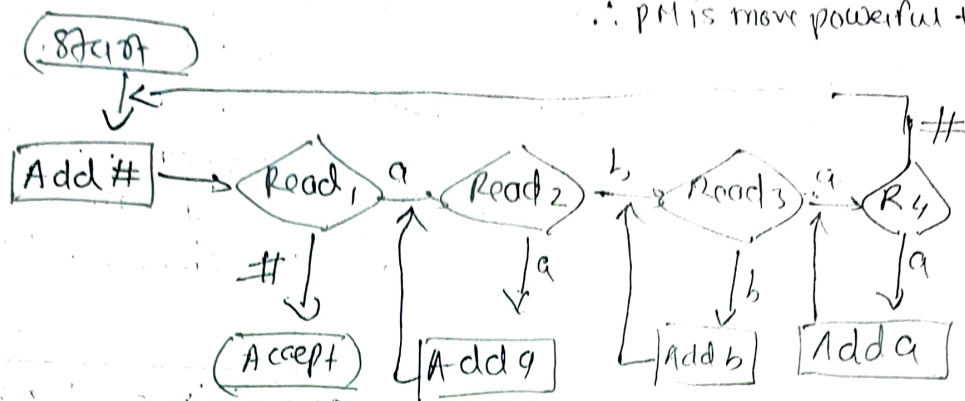 ∴ PM is more powerful
Start
#
Add #
Read1
a
Read2
b
Read3
a
R4
#
a
b
a
Accept
Add a
Add b
Add a